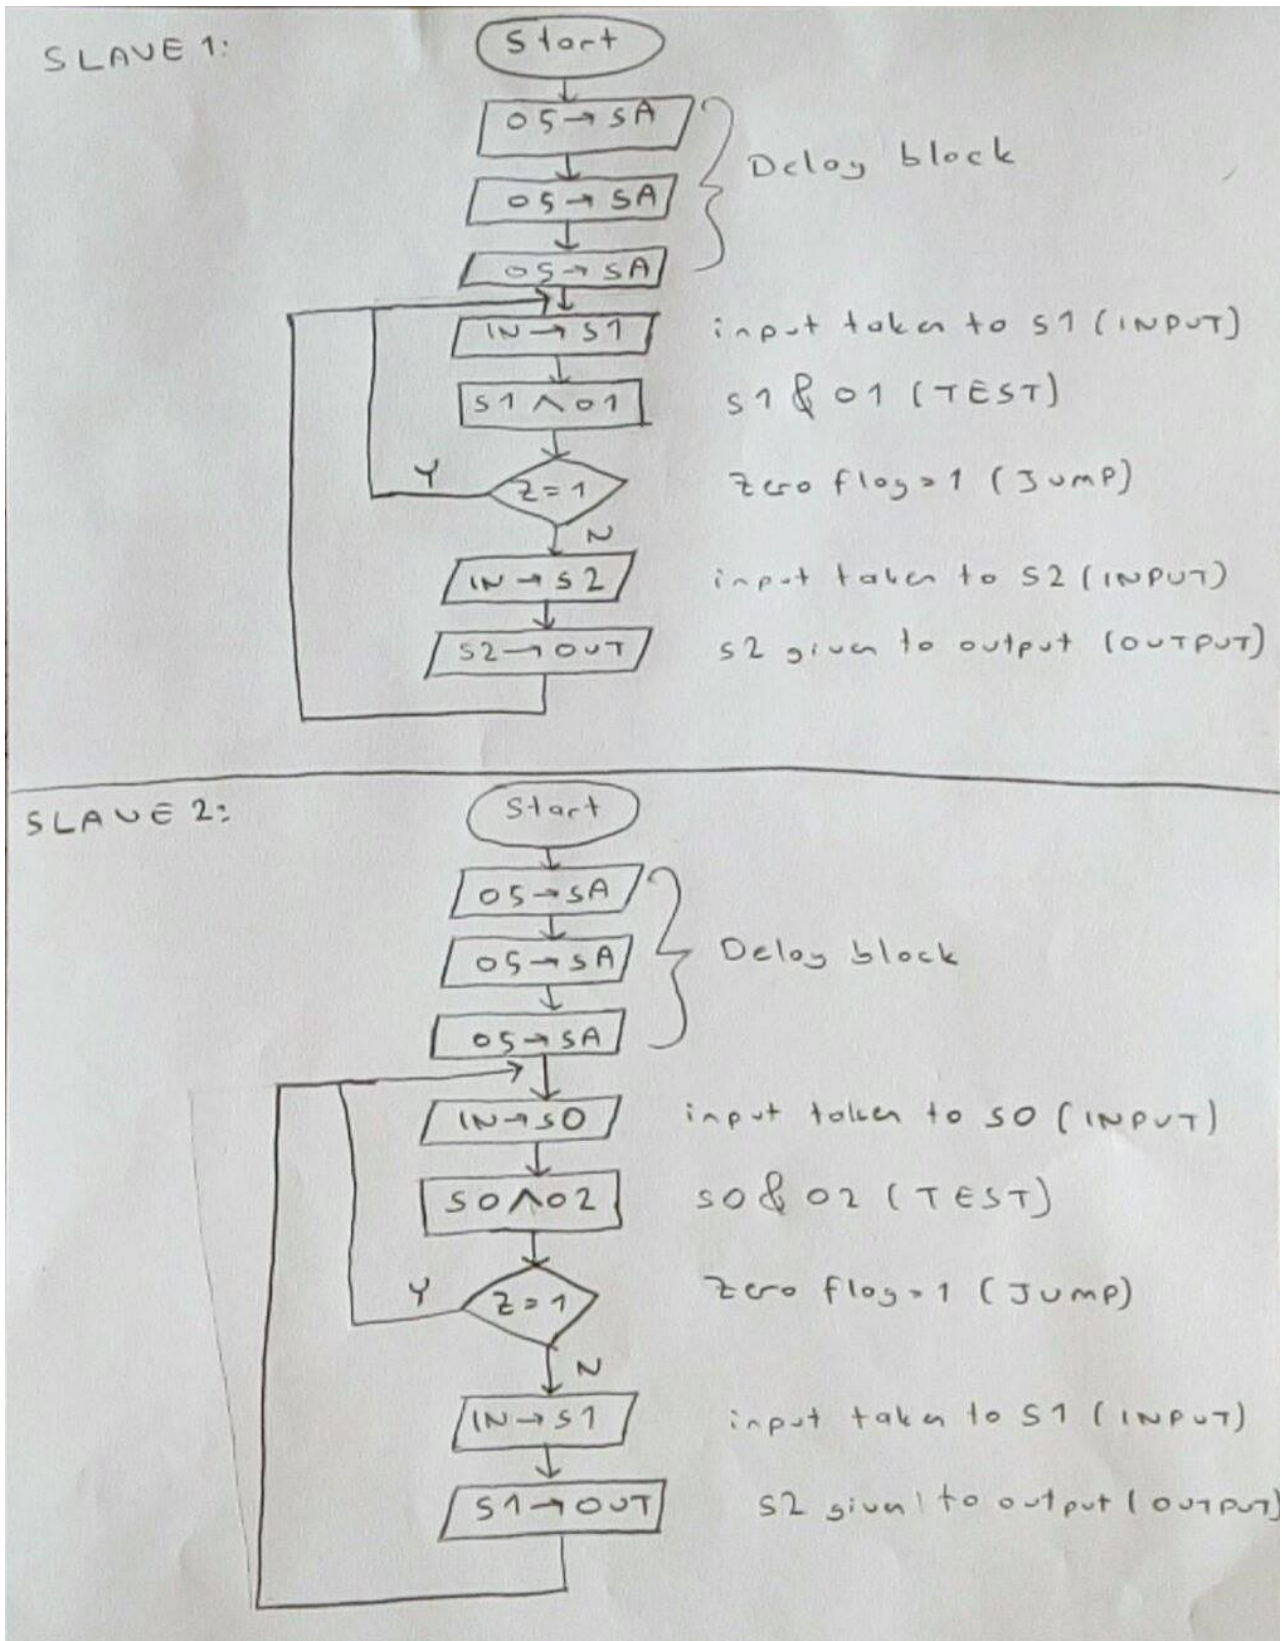 SLAVE 1:
Start
05→SA
05→SA
Delay block
05→SA
IN→S1 input taken to S1 (INPUT)
S1∧01 S1 & 01 (TEST)
Y Z=1 Zero flag=1 (JUMP)
N
IN→S2 input taken to S2 (INPUT)
S2→OUT S2 given to output (OUTPUT)
SLAVE 2:
Start
05→SA
05→SA Delay block
05→SA
IN→S0 input taken to S0 (INPUT)
S0∧02 S0 & 02 (TEST)
Y Z=1 Zero flag=1 (JUMP)
N
IN→S1 input taken to S1 (INPUT)
S1→OUT S2 given to output (OUTPUT)